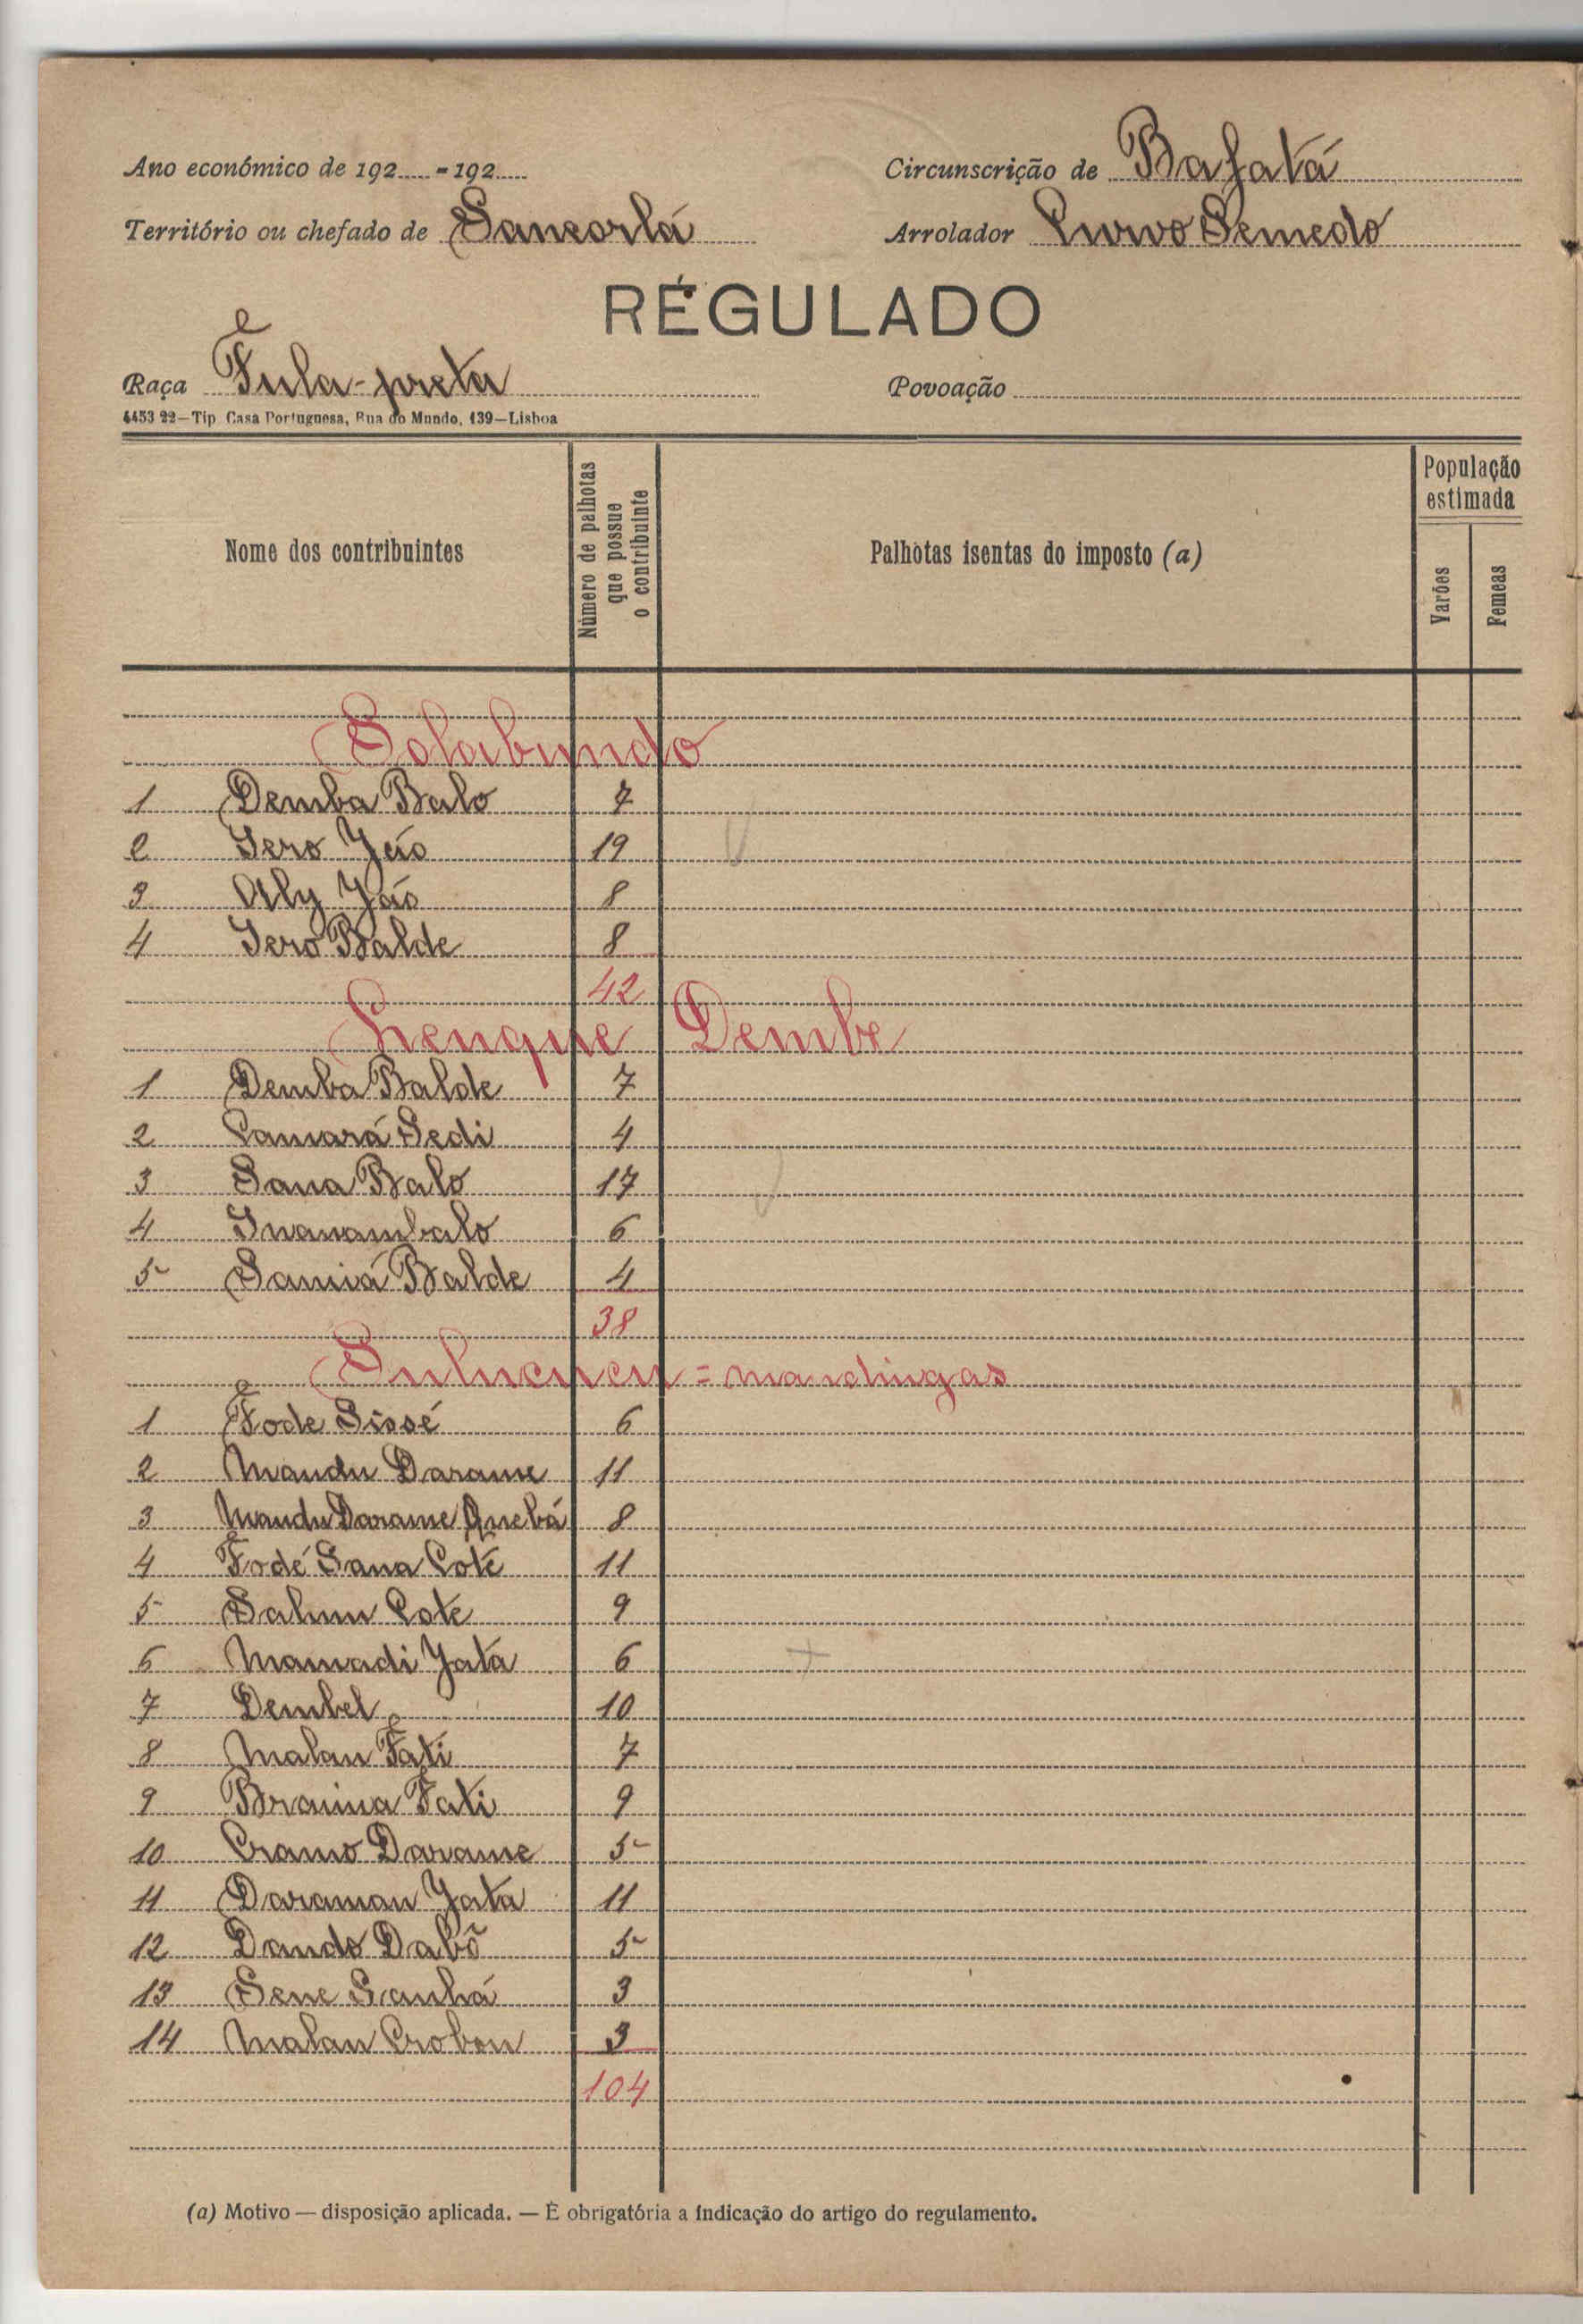 Ano económico de 192..... - 192.....
Circunscrição de Bafatá
Território ou chefado de Sancorlá
Arrolador Curvo Semedo
RÉGULADO
Raça Fula-preta
Povoação
4453 22—Tip. Casa Portuguesa, Rua do Mundo, 139—Lisboa
Nome dos contribuintes
Número de palhotas que possue o contribuinte
Palhotas isentas do imposto (a)
População estimada
Varões
Femeas
Solabundo
1 Demba Balo 7
2 Iero Jáo 19
3 Aly Jáo 8
4 Iero Balde 8
42
Lenque Dembe
1 Demba Balde 7
2 Camará Sedi 4
3 Sana Balo 17
4 Inanambalo 6
5 Samiá Balde 4
38
Sulucucu = mandingas
1 Fode Sissé 6
2 Mandu Darame 11
3 Mandu Darame Quebá 8
4 Fodé Sana Cote 11
5 Salum Cote 9
6 Mamadi Jata 6
7 Dembel 10
8 Malan Fati 7
9 Braima Fati 9
10 Cramo Darame 5
11 Daraman Jata 11
12 Dando Dabõ 5
13 Sene Sanhá 3
14 Malan Crobon 3
104
(a) Motivo — disposição aplicada. — É obrigatória a indicação do artigo do regulamento.